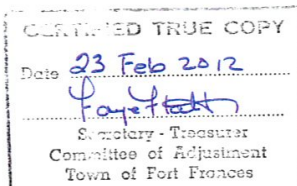 CERTIFIED TRUE COPY
Date 23 Feb 2012
Secretary - Treasurer
Committee of Adjustment
Town of Fort Frances